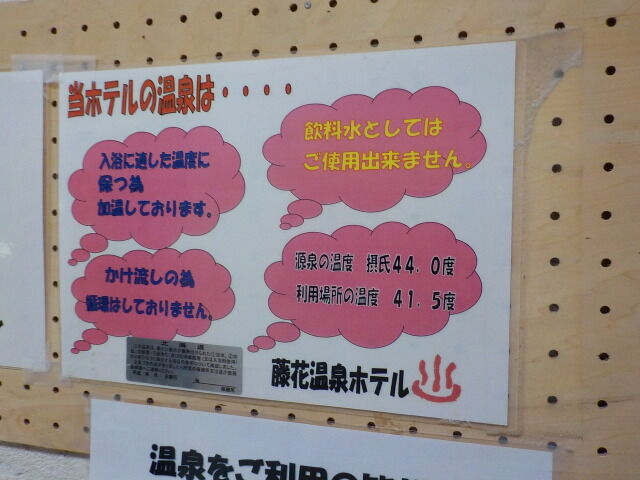 当ホテルの温泉は・・・・
入浴に適した温度に
保つ為
加温しております。
飲料水としては
ご使用出来ません。
かけ流しの為
循環はしておりません。
源泉の温度 摂氏44.0度
利用場所の温度 41.5度
北海道
藤花温泉ホテル
温泉をご利用の